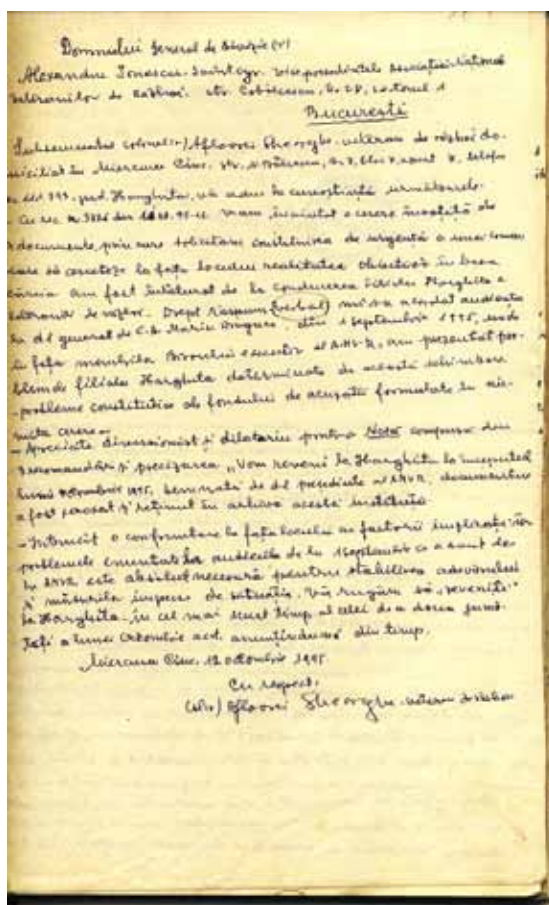 Domnului General de Divizie (r)
Alexandru Ionescu-Saint Cyr. Vicepreședintele Asociației Naționale
Veteranilor de Război. str. Cobălcescu, nr. 28, sectorul 1
București
Subsemnatul colonel (r) Afloarei Gheorghe, veteran de război do-
miciliat în Miercurea Ciuc, str. N. Bălcescu, telefon
jud. Harghita, vă aduc la cunoștință următoarele.
- Cu rec. nr. din v-am înaintat o cerere însoțită de
documente, prin care solicitam constituirea de urgență a unei comisii
care să cerceteze la fața locului realitatea obiectivă în baza
căreia am fost înlăturat de la conducerea filialei Harghita a
veteranilor de război. Drept răspuns (verbal) mi s-a acordat audiența
la dl general de C.A. Marin Dragnea din 1 septembrie 1995, unde
în fața membrilor Biroului executiv al A.N.V.R. am prezentat pro-
blemele filialei Harghita determinate de această schimbare
- probleme constitutive ale fondului de acuzații formulate în
cerere -
- Apreciate diversionist și dilatoriu printr-o compusă din
recomandări și precizarea „Vom reveni la Harghita la începutul
lunii octombrie 1995, semnată de dl președinte al ANVR, documentul
a fost și reținut în arhiva acestei instituții
- Întrucît o confruntare la fața locului cu factorii implicați în
problemele audienței de la 1 septembrie
la ANVR este absolut necesară pentru stabilirea adevărului
și măsurile impuse de situație. Vă rugăm să „reveniți”
la Harghita în cel mai scurt timp al celei de-a doua jumă-
tăți a lunii octombrie a.c. anunțîndu-mă din timp.
Miercurea Ciuc, 12 octombrie 1995
Cu respect.
Afloarei Gheorghe - veteran de război